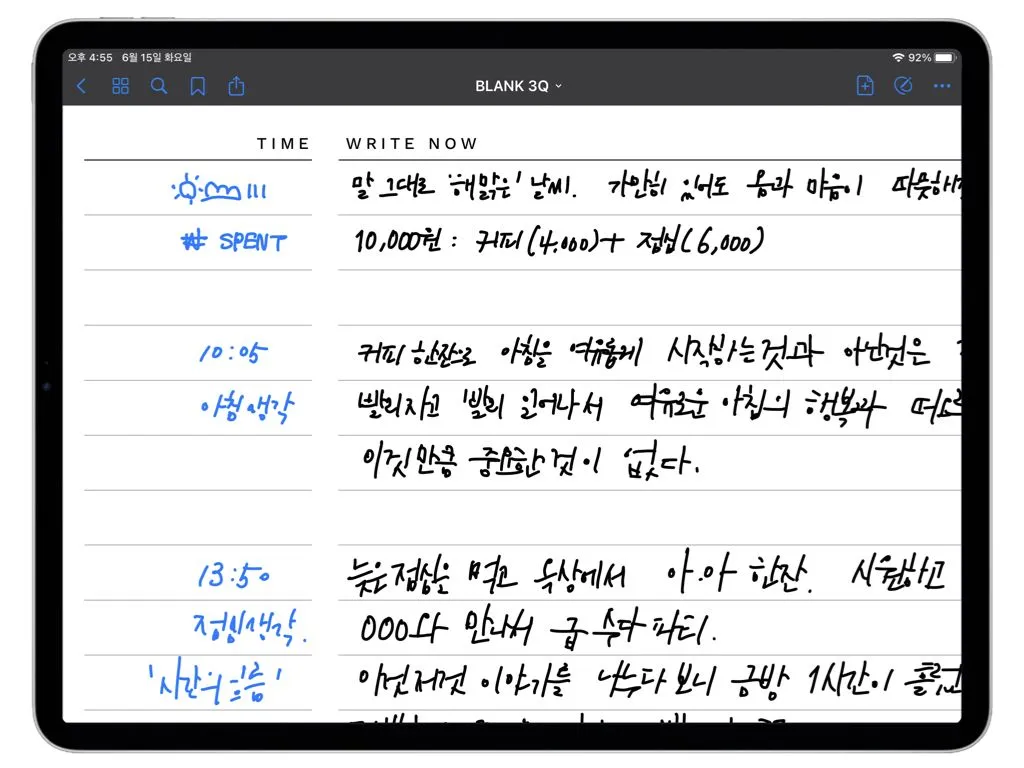 오후 4:55 6월 15일 화요일 92%
BLANK 3Q
TIME WRITE NOW
말 그대로 '해맑은' 날씨. 가만히 있어도 몸과 마음이 따뜻해
# SPENT 10,000원 : 커피(4,000)+ 점심(6,000)
10:05 커피 한잔으로 아침을 여유롭게 시작하는것과 아닌것은
아침생각 빨리자고 빨리 일어나서 여유로운 아침의 행복과
이것만큼 중요한것이 없다.
13:50 늦은점심을 먹고 옥상에서 아.아 한잔. 시원하고
점심생각. 000와 만나서 급 수다 파티.
'시간의 흐름' 이것저것 이야기를 나누다보니 금방 1시간이